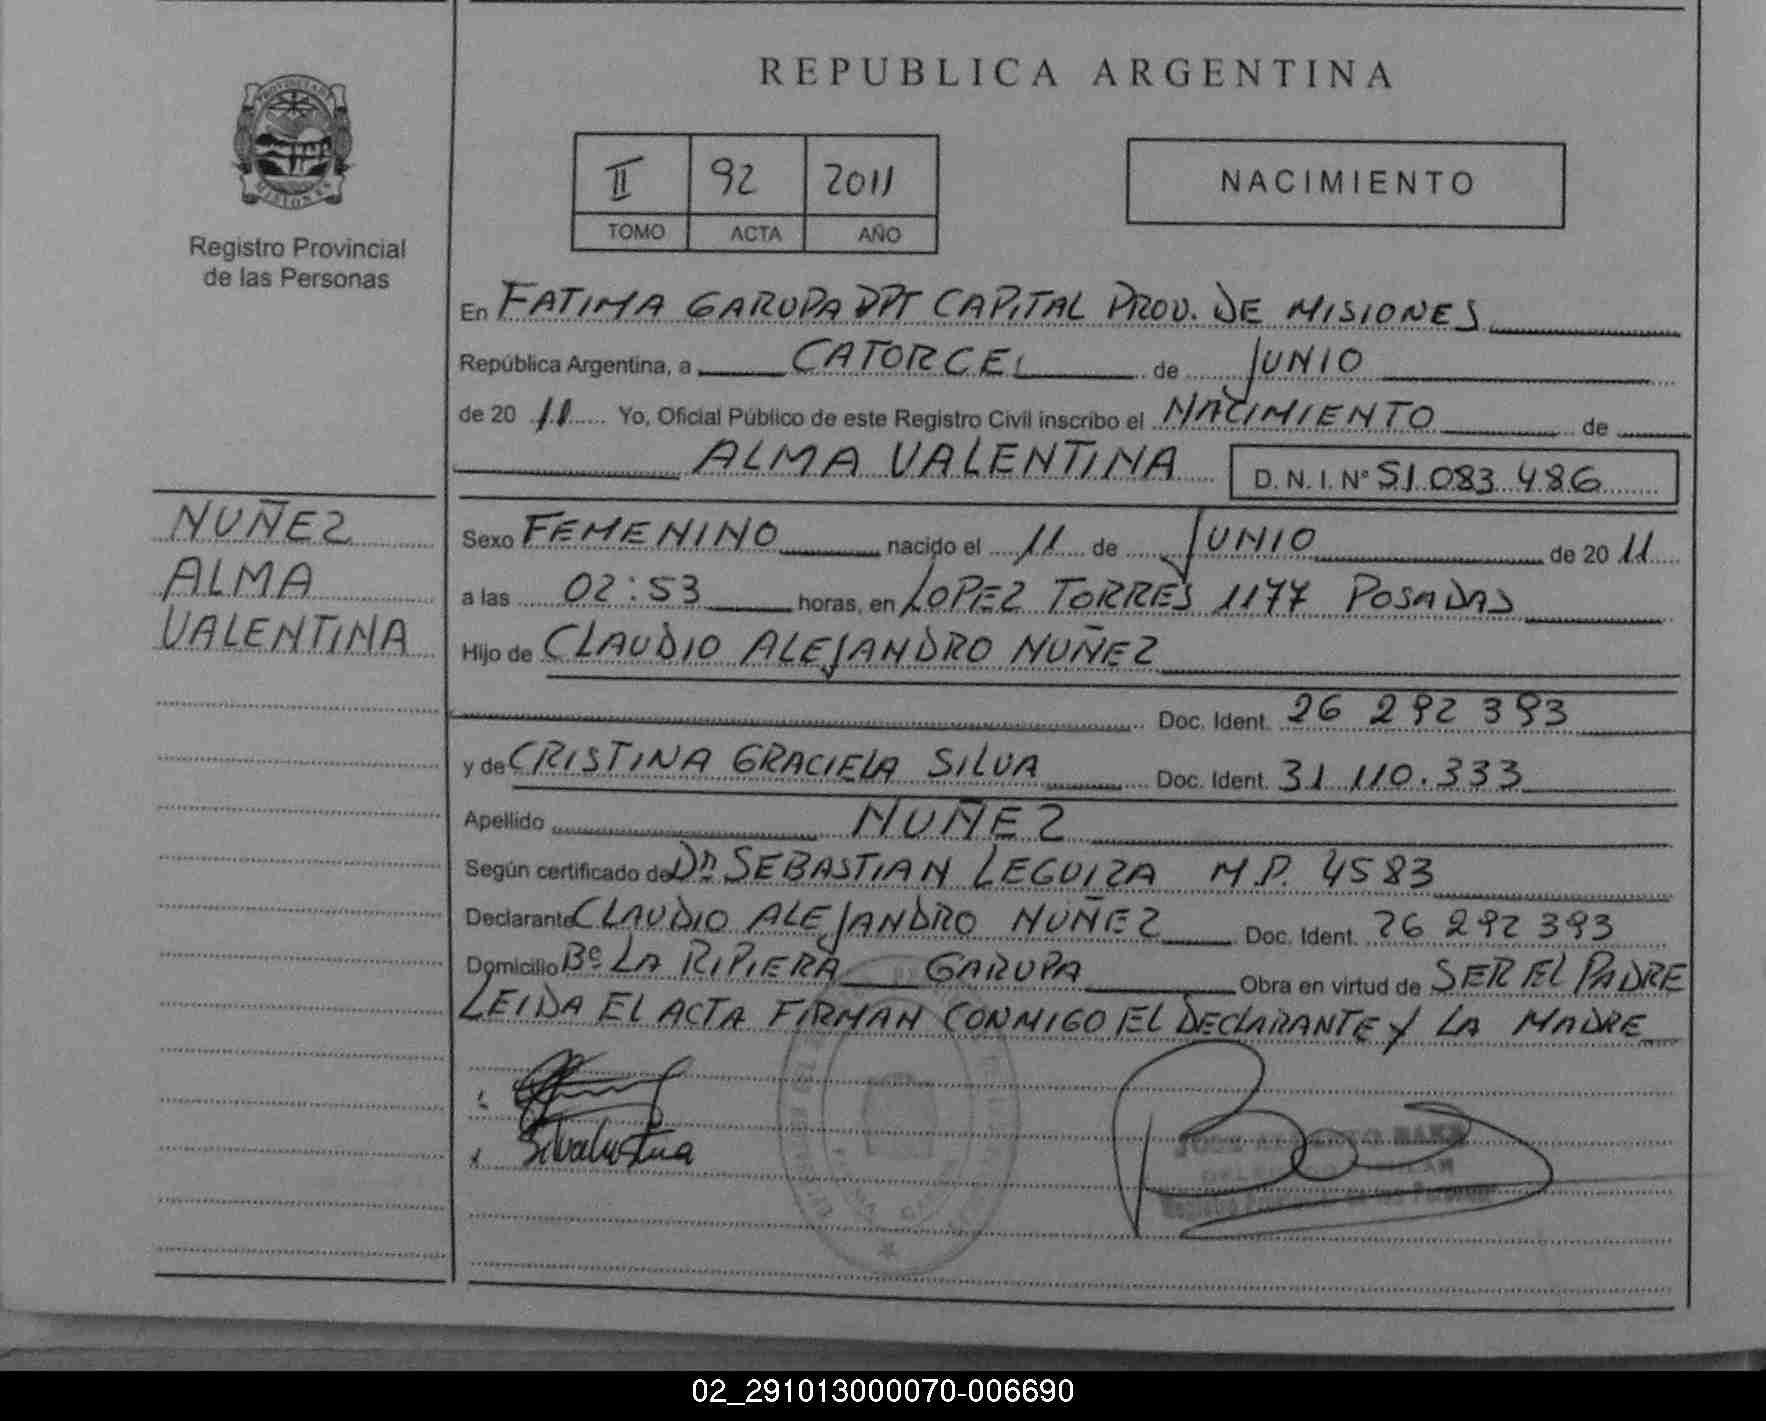 REPUBLICA ARGENTINA
II 92 2011
TOMO ACTA AÑO
NACIMIENTO
Registro Provincial
de las Personas
En FATIMA GARUPA DPT CAPITAL PROV. DE MISIONES
República Argentina, a CATORCE de JUNIO
de 20 11 Yo, Oficial Público de este Registro Civil inscribo el NACIMIENTO de
ALMA VALENTINA D. N. I. Nº 51 083 486
NUÑEZ
ALMA
VALENTINA
Sexo FEMENINO nacido el 11 de JUNIO de 20 11
a las 02:53 horas, en LOPEZ TORRES 1177 POSADAS
Hijo de CLAUDIO ALEJANDRO NUÑEZ
Doc. Ident. 26 292 393
y de CRISTINA GRACIELA SILVA Doc. Ident. 31 110.333
Apellido NUÑEZ
Según certificado de Dn SEBASTIAN LEGUIZA M.P. 4583
Declarante CLAUDIO ALEJANDRO NUÑEZ Doc. Ident. 26 292 393
Domicilio Bº LA RIPIERA GARUPA Obra en virtud de SER EL PADRE
LEIDA EL ACTA FIRMAN CONMIGO EL DECLARANTE Y LA MADRE
02_291013000070-006690